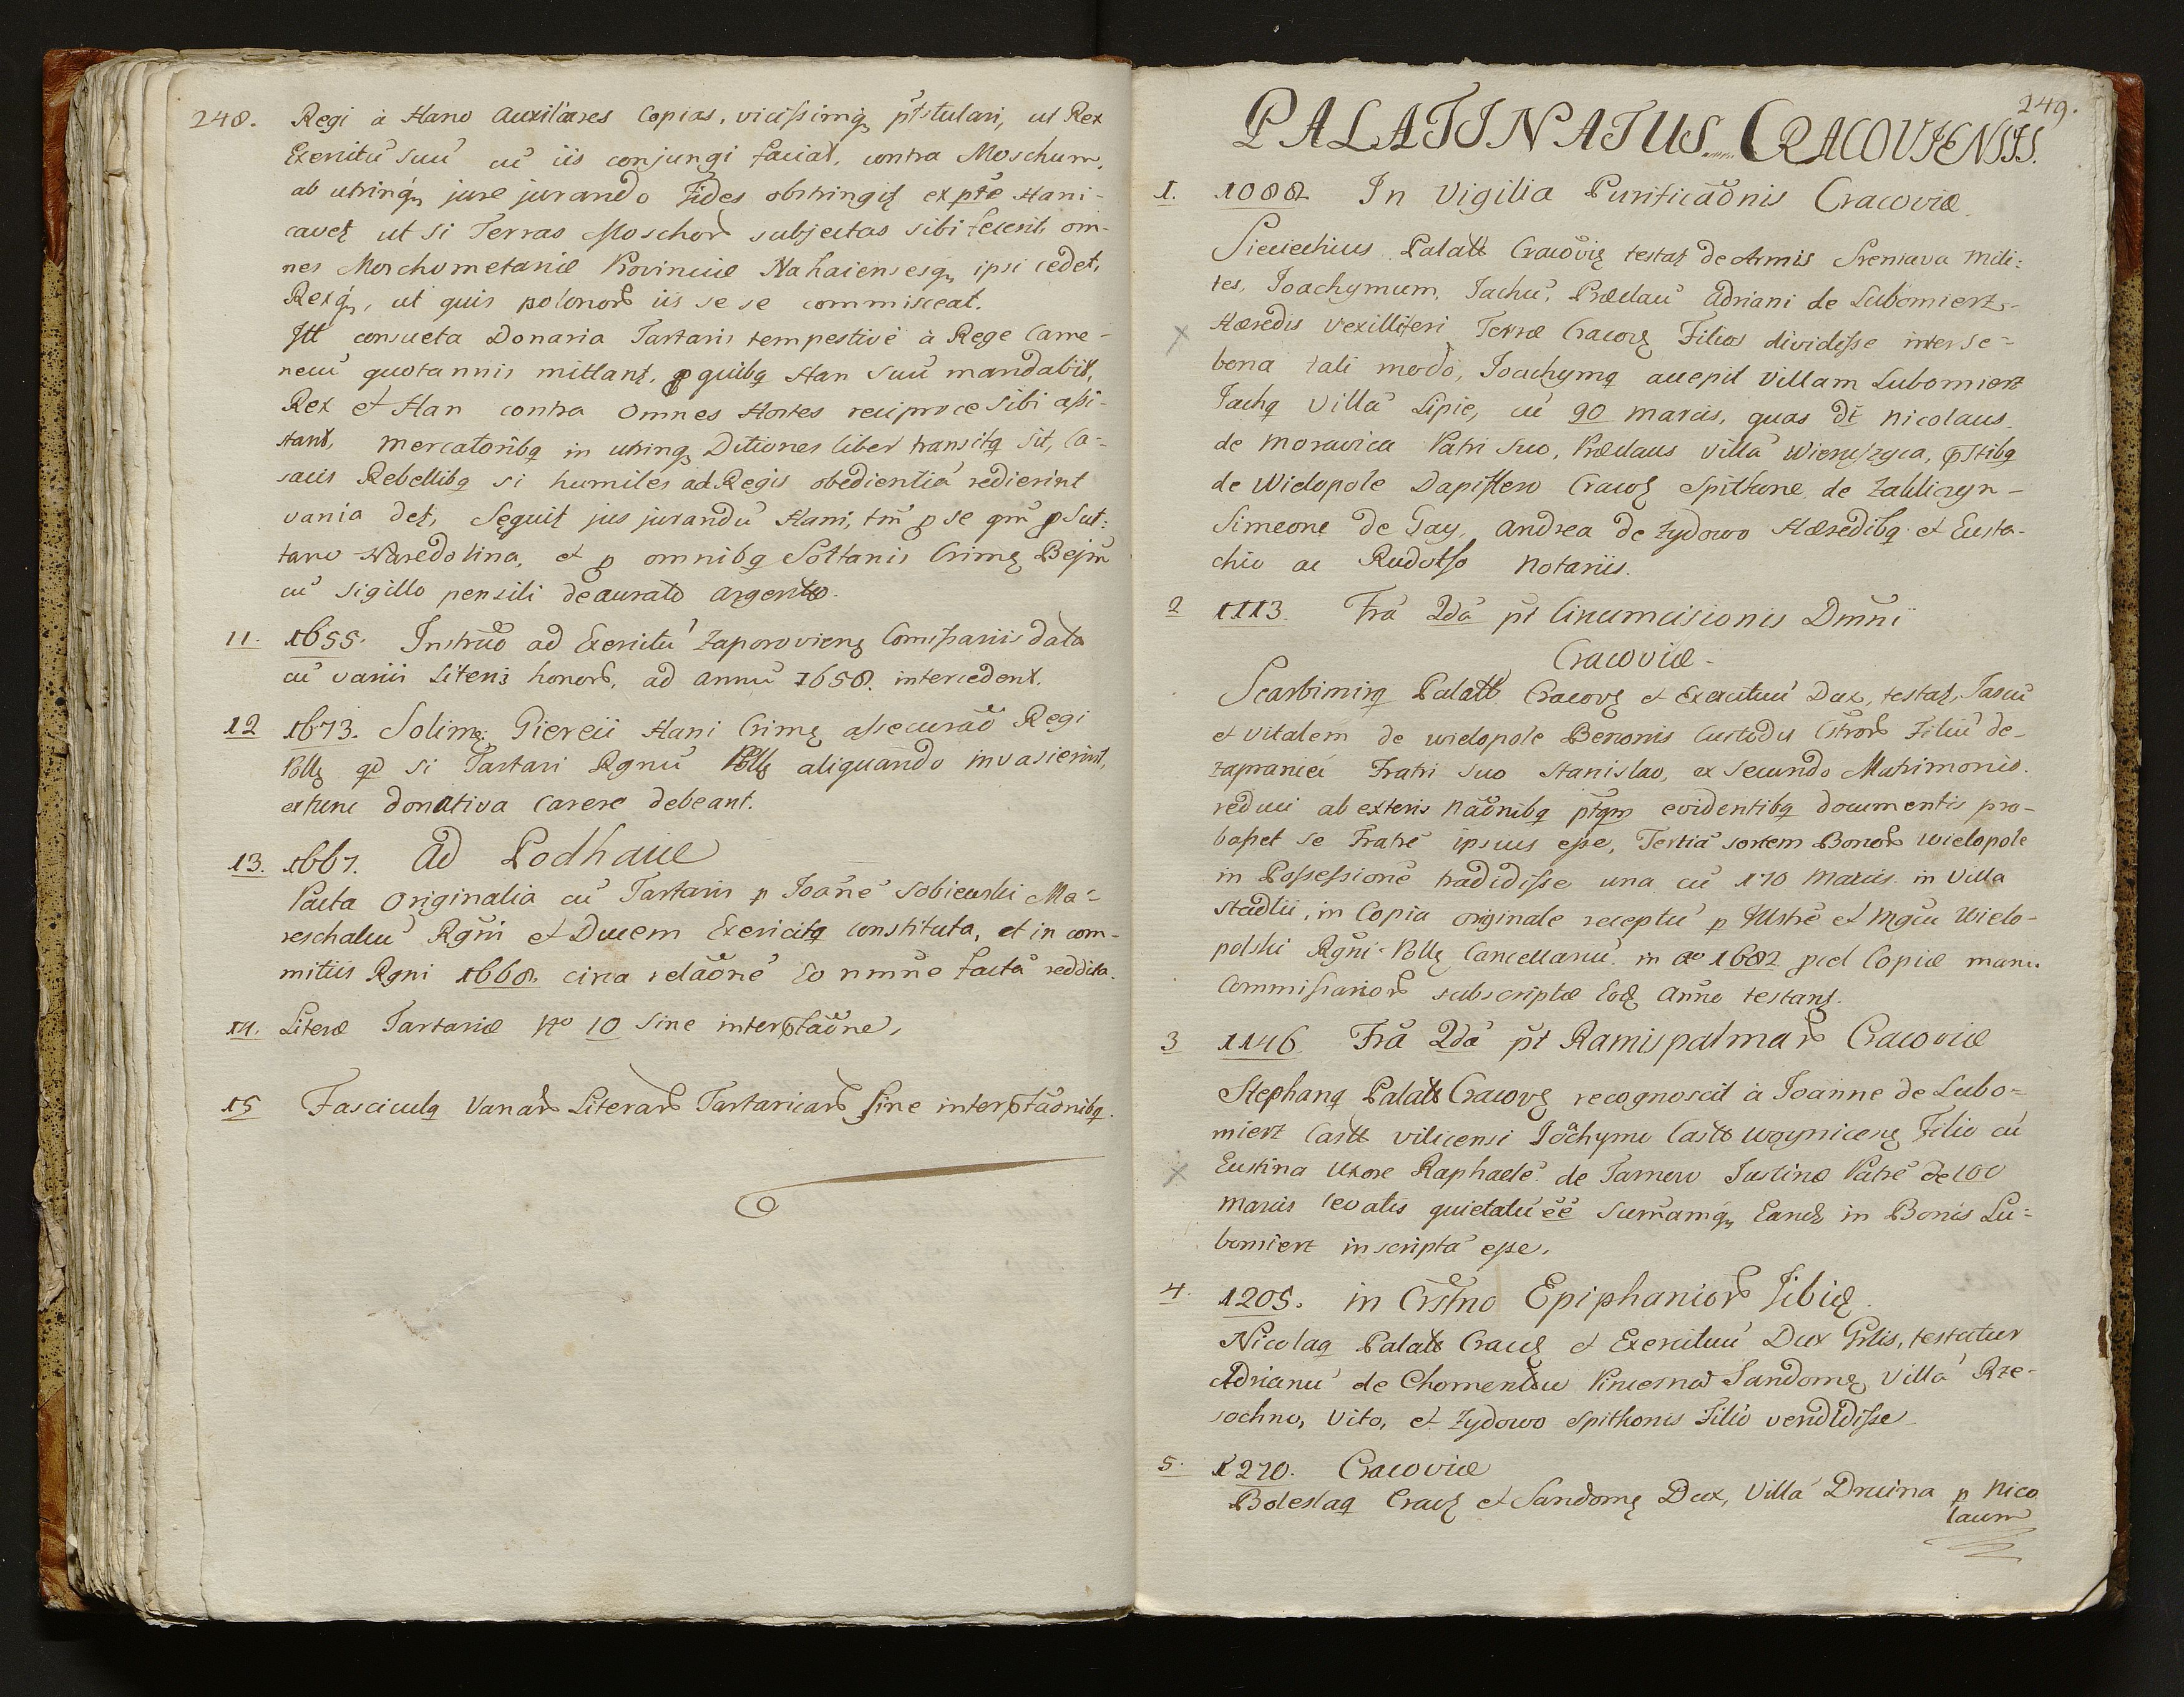 248. Regi à Hano Auxiliares Copias, vicissimq, pstulari, ut Rex
Exercitū suū cū iis conjungi faciat, contra Moschum,
ab utrinq, jure jurando Fides obstringit ex pte Hani
cavet ut si Terras Moschor subjectas sibi fecerit, om-
nes Machometaniæ Provinciæ Nahaiensesq, ipsi cedet,
Rexq, ut quis polonor iis se se commisceat.
Itt consueta Donaria Tartaris tempestivè à Rege Came-
necii quotannis mittant, p quibq Han suū mandabit,
Rex et Han contra Omnes Hostes reciproce sibi assi-
stant, mercatoribq in utrinq Ditiones liber transitq sit, Co-
sacis Rebellibq si humiles ad Regis obedientiā redierint
vania det, Seguit jus jurandū Hani, tm p se qm p Sut-
tano Naredolina, et p omnibq Soltanis Crimę Bejm
cū Sigillo pensili deaurato argento.
11. 1655. Instructio ad Exercitū Zaporoviens Comissariis data
cū variis Literis honor, ad annū 1658. intercedent.
12 1673. Solimę Giereii Hani Crimę assecurao Regi
Pollę qd si Tartari Rgnū Pollę aliquando invasierint,
extunc donativa carere debeant.
13. 1667. Ad Podhaice
Pacta Originalia cū Tartaris p Joanē Sobiewski Ma-
reschalcū Rgni et Ducem Exercitq constituta, et in com-
mitiis Rgni 1668. circa relaonē eo nmne factā reddita.
14. Literæ Tartariæ No 10 Sine interptaone,
15 Fasciculq Variar Literar Tartaricar sine interptaonibq.
249.
PALATINATUS CRACOVIENSIS.
1. 1088. In Vigilia Purificaonis Cracoviæ.
Sieciechius Palatt Cracovię testat de Armis Sreniava mili-
tes, Joachymum, Jachū, Prædaū Adriani de Lubomierz-
Hæredis Vexilliferi Terræ Cracov Filios dividisse inter se-
bona tali modo, Joachymq accepit Villam Lubomierz
Jachq Villā Lipie, cū 90 marcis, quas dt Nicolaus
de Moravica Patri suo, Prædaus Villā Wieruszyca, pstibq
de Wielopole Dapifero Cracov Spitkone de Zakliczyn-
Simeone de Gay, Andrea de Zydowo Hæredibq et Eusta-
chio ac Rudolfo Notariis.
2 1113. Fra 2da pt Circumcisionis Dmni
Cracoviæ.
Scarbimirq Palatt Cracov et Exercituū Dux, testat, Jascū
et Vitalem de wielopole Benonis Custodis Cstror Filiū de-
zapranici Fratri suo Stanislao, ex Secundo Matrimonio.
reduci ab exteris Naonibq ptqm evidentibq documentis pro-
basset se Fratrē ipsius esse, Tertiā sortem Bonor wielopole
in Possessionē tradidisse una cū 170 Marcis in Villa
Stadlii, in Copia originale receptū p Illstrē et Mgcu Wielo-
polski Rgni Pollę Cancellariū in ao 1682 pcd Copiæ manu
Commissarior subscriptæ Eod Anno testant.
3 1146. Fra 2da pt Ramispalmar Cracoviæ
Stephanq Palatt Cracov recognoscit à Joanne de Lubo-
mierz Castt vilicensi Joachymi Castt woynicens Filio cū
Eustina Uxore Raphaelē de Tarnow Justinæ Patrē de 100
Marcis levatis quietatū ēē Sumamq, Eand in Bonis Lu-
bomierz inscriptā esse.
4. 1205. in Crstno Epiphanior
Nicolaq Palatt Cracov et Exercituū Dux Grlis, testatur
Adrianū de Chomentow Pincernar Sandomę Villā Rze-
sochno, Vito, et Zydowo Spitkonis Filio vendidisse
5. 1270. Cracoviæ
Boleslaq Cracov et Sandomę Dux, Villā Druina p Nico
laum